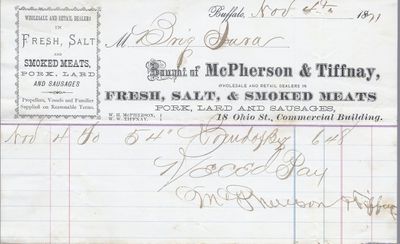 WHOLESALE AND RETAIL DEALERS
IN
FRESH, SALT
AND
SMOKED MEATS,
PORK, LARD
AND SAUSAGES
Propellers, Vessels and Families
Supplied on Reasonable Terms.
Buffalo, Nov 4th 1871
M Brig Sura
Bought of McPherson & Tiffnay,
WHOLESALE AND RETAIL DEALERS IN
FRESH, SALT, & SMOKED MEATS
PORK, LARD AND SAUSAGES,
W. H. McPHERSON,
W. W. TIFFNAY.
18 Ohio St., Commercial Building.
Nov 4 To 54 648
Recd Pay
McPherson & Tiffnay